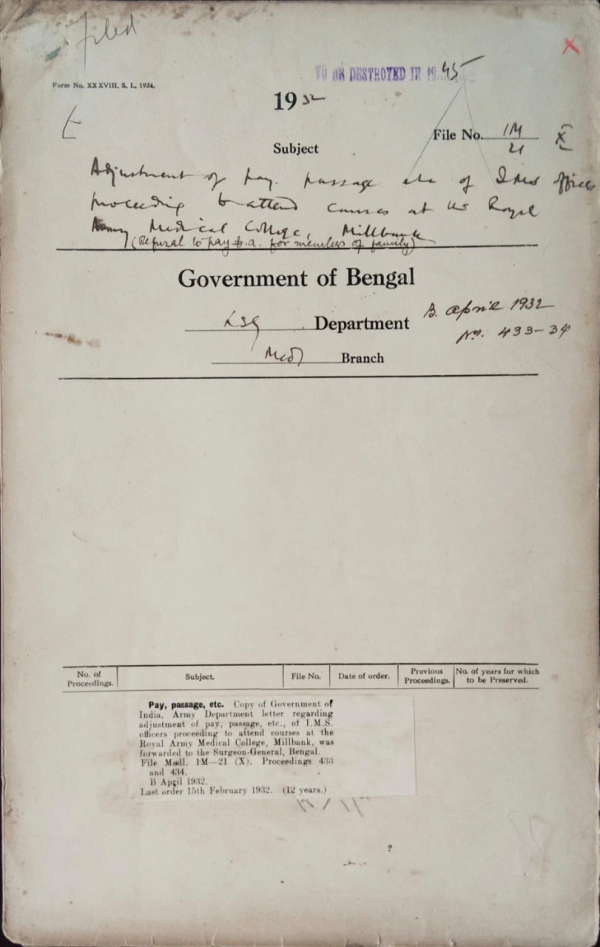 filed
Form No. XXXVIII, S. L., 1924.
TO BE DESTROYED IN 1945
1932
File No. 1M/21 X
Subject
Adjustment of pay, passage etc of I.M.S officers
proceeding to attend courses at the Royal
Army Medical College, Millbank
(Refusal to pay t.a. for members of family)
Government of Bengal
LSG Department
B. April 1932
Medl Branch
No. 433-34
No. of Proceedings. Subject. File No. Date of order. Previous Proceedings. No. of years for which to be Preserved.
Pay, passage, etc. Copy of Government of
India, Army Department letter regarding
adjustment of pay, passage, etc., of I.M.S.
officers proceeding to attend courses at the
Royal Army Medical College, Millbank, was
forwarded to the Surgeon-General, Bengal.
File Medl. 1M—21 (X). Proceedings 433
and 434.
B April 1932.
Last order 15th February 1932. (12 years.)